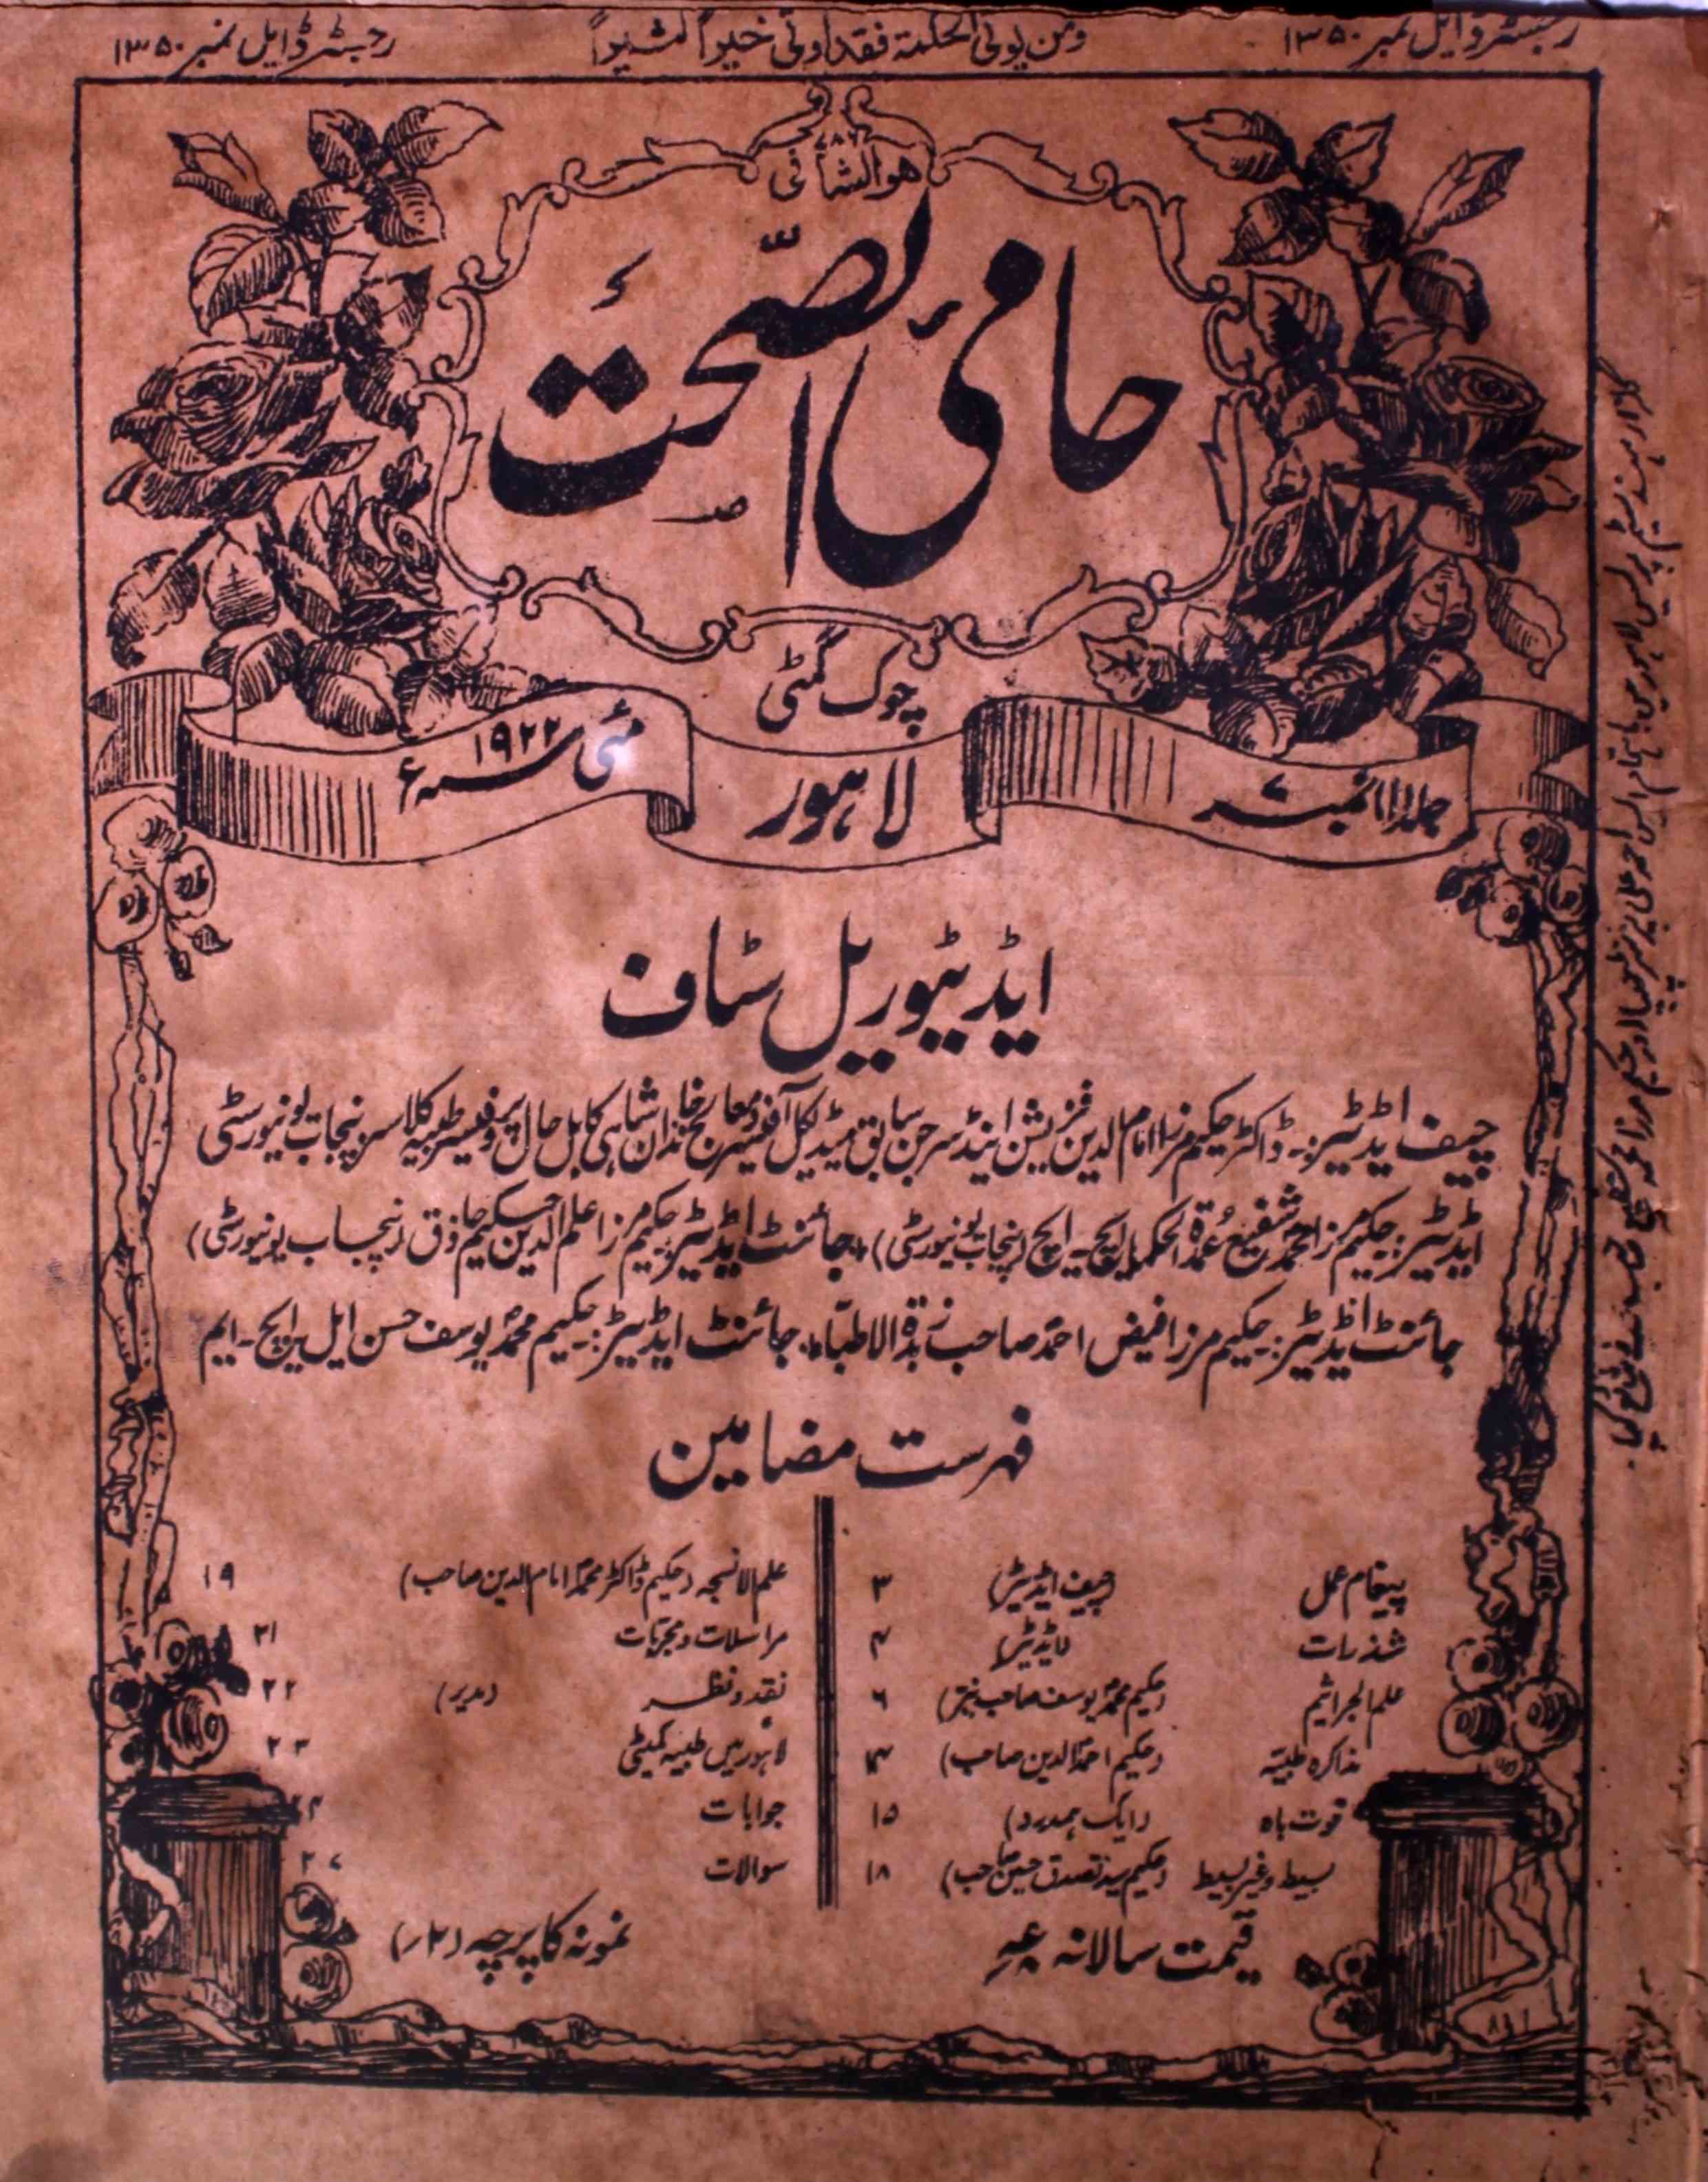 رجسٹرڈ ایل نمبر ۱۳۵۰
ومن یوتی الحکمة فقد اوتی خیراً کثیراً
رجسٹرڈ ایل نمبر ۱۳۵۰
۷۸۶
ھوالشافی
حامئ الصحت
چوک گمٹی
جلد ۱۱ نمبر ۷
لاہور
مئی سنہ ۱۹۲۲ء
ایڈیٹوریل سٹاف
چیف ایڈیٹر:۔ ڈاکٹر حکیم مرزا امام الدین فزیشن اینڈ سرجن سابق میڈیکل آفیسر و معالج خاندان شاہی کابل حال پروفیسر طبیہ کلاسز پنجاب یونیورسٹی
ایڈیٹر:۔ حکیم مرزا محمد شفیع عمدۃ الحکما ایچ۔ ایچ (پنجاب یونیورسٹی)، جائنٹ ایڈیٹر:۔ حکیم مرزا علم الدین حکیم حاذق (پنجاب یونیورسٹی)
جائنٹ ایڈیٹر:۔ حکیم مرزا فیض احمد صاحب زبدۃ الاطبا، جائنٹ ایڈیٹر:۔ حکیم محمد یوسف حسن ایل۔ ایچ۔ ایم
فہرست مضامین
پیغام عمل (چیف ایڈیٹر) ۳
شذرات (ایڈیٹر) ۴
علم الجراثیم (حکیم محمد یوسف صاحب نیّر) ۶
مذاکرہ طبیہ (حکیم احمد الدین صاحب) ۱۴
قوت باہ (ایک ہمدرد) ۱۵
بسیط و غیر بسیط (حکیم سید تصدق حسین صاحب) ۱۸
علم الانسجہ (حکیم ڈاکٹر محمد امام الدین صاحب) ۱۹
مراسلات و مجربات ۲۱
نقد و نظر (مدیر) ۲۲
لاہور میں طبیہ کمیٹی ۲۳
جوابات ۲۴
سوالات
قیمت سالانہ
نمونہ کا پرچہ (۲؍)
گلزار ہند سٹیم پریس لاہور میں باہتمام احمد علی پرنٹر چھپا اور حکیم مرزا محمد شفیع صاحب نے شائع کیا۔